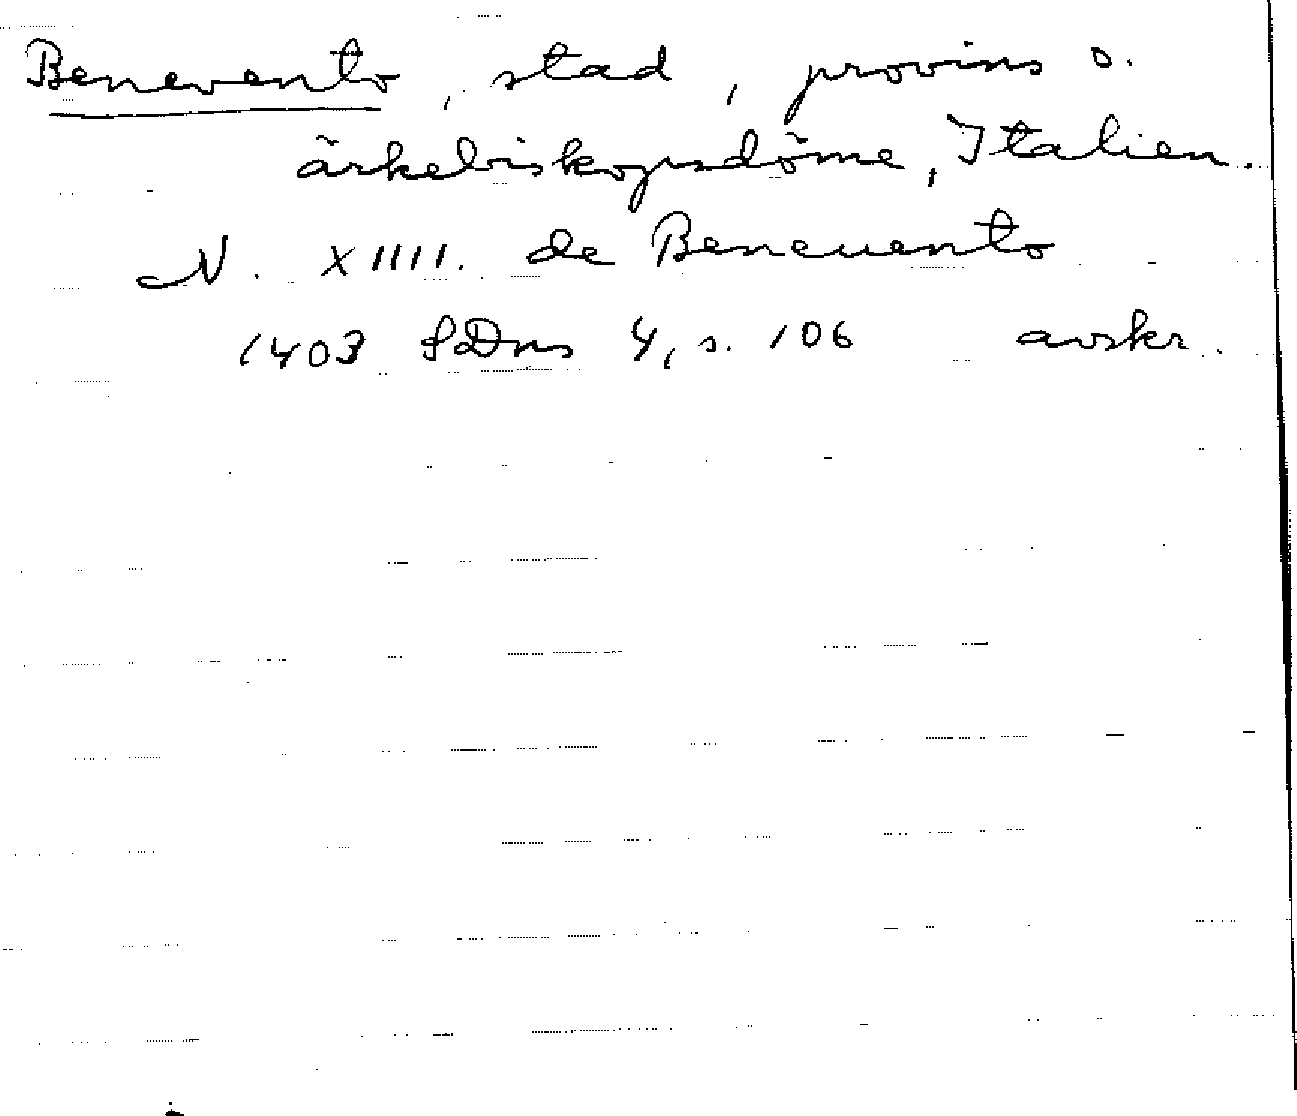 Benevento, stad, provins o.
ärkebiskopsdöme, Italien.
N. XIIII. de Beneuento
1403 SDns 4, s. 106 avskr.